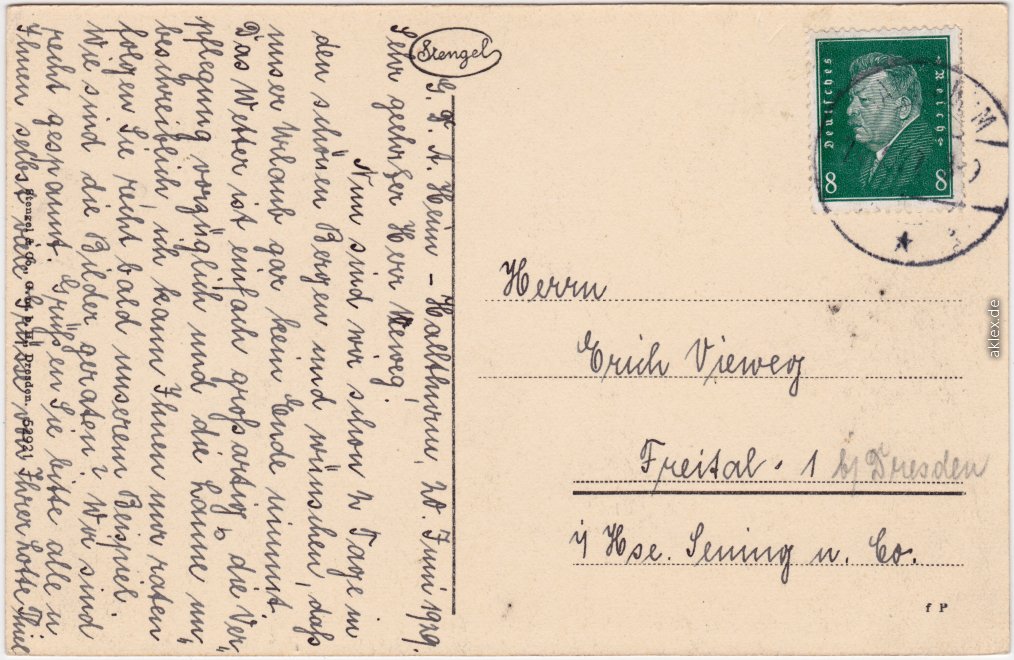 Stengel
Hallthurm, 20. Juni 1929.
Sehr geehrter Herr Vieweg!
Nun sind wir schon 2 Tage in
den schönen Bergen und wünschen, daß
unser Urlaub gar kein Ende nimmt.
Das Wetter ist einfach großartig, die Ver-
pflegung vorzüglich und die Laune un-
beschreiblich, ich kann Ihnen nur raten
folgen Sie recht bald unserem Beispiel.
Wie sind die Bilder geraten? Wir sind
recht gespannt. Grüßen Sie bitte alle u
Ihnen selbst viel Grüße von Ihrer Lotte Thiel
Stengel & Co., G. m. b. H., Dresden. 52921
Deutsches Reich
8 8
Herrn
Erich Vieweg
Freital. 1 b/ Dresden
i/ Hse. Sening u. Co.
f P
aklex.de